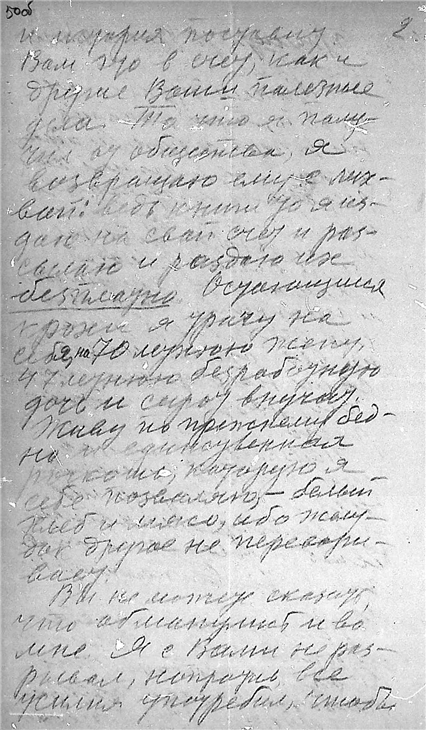 50об
2
и история поставит
Вам это в счет, как и
другие Ваши полезные
дела. То что я полу-
чил от общества, я
возвращаю ему с лих-
вой: ведь книги то я из-
даю на свой счет и раз-
сылаю и раздаю их
безплатно. Остающиеся
крохи я трачу на
себя, на 70 летнюю жену,
47 летнюю безработную
дочь и сирот внучат.
Живу по прежнему бед-
но и единственная
роскошь, которую я
себе позволяю, – белый
хлеб и мясо, ибо желу-
док другое не перевари-
вает.
Вы не можете сказать,
что обманулись и во
мне. Я с Вами не раз-
рывал, напротив все
усилия употребил, чтобы